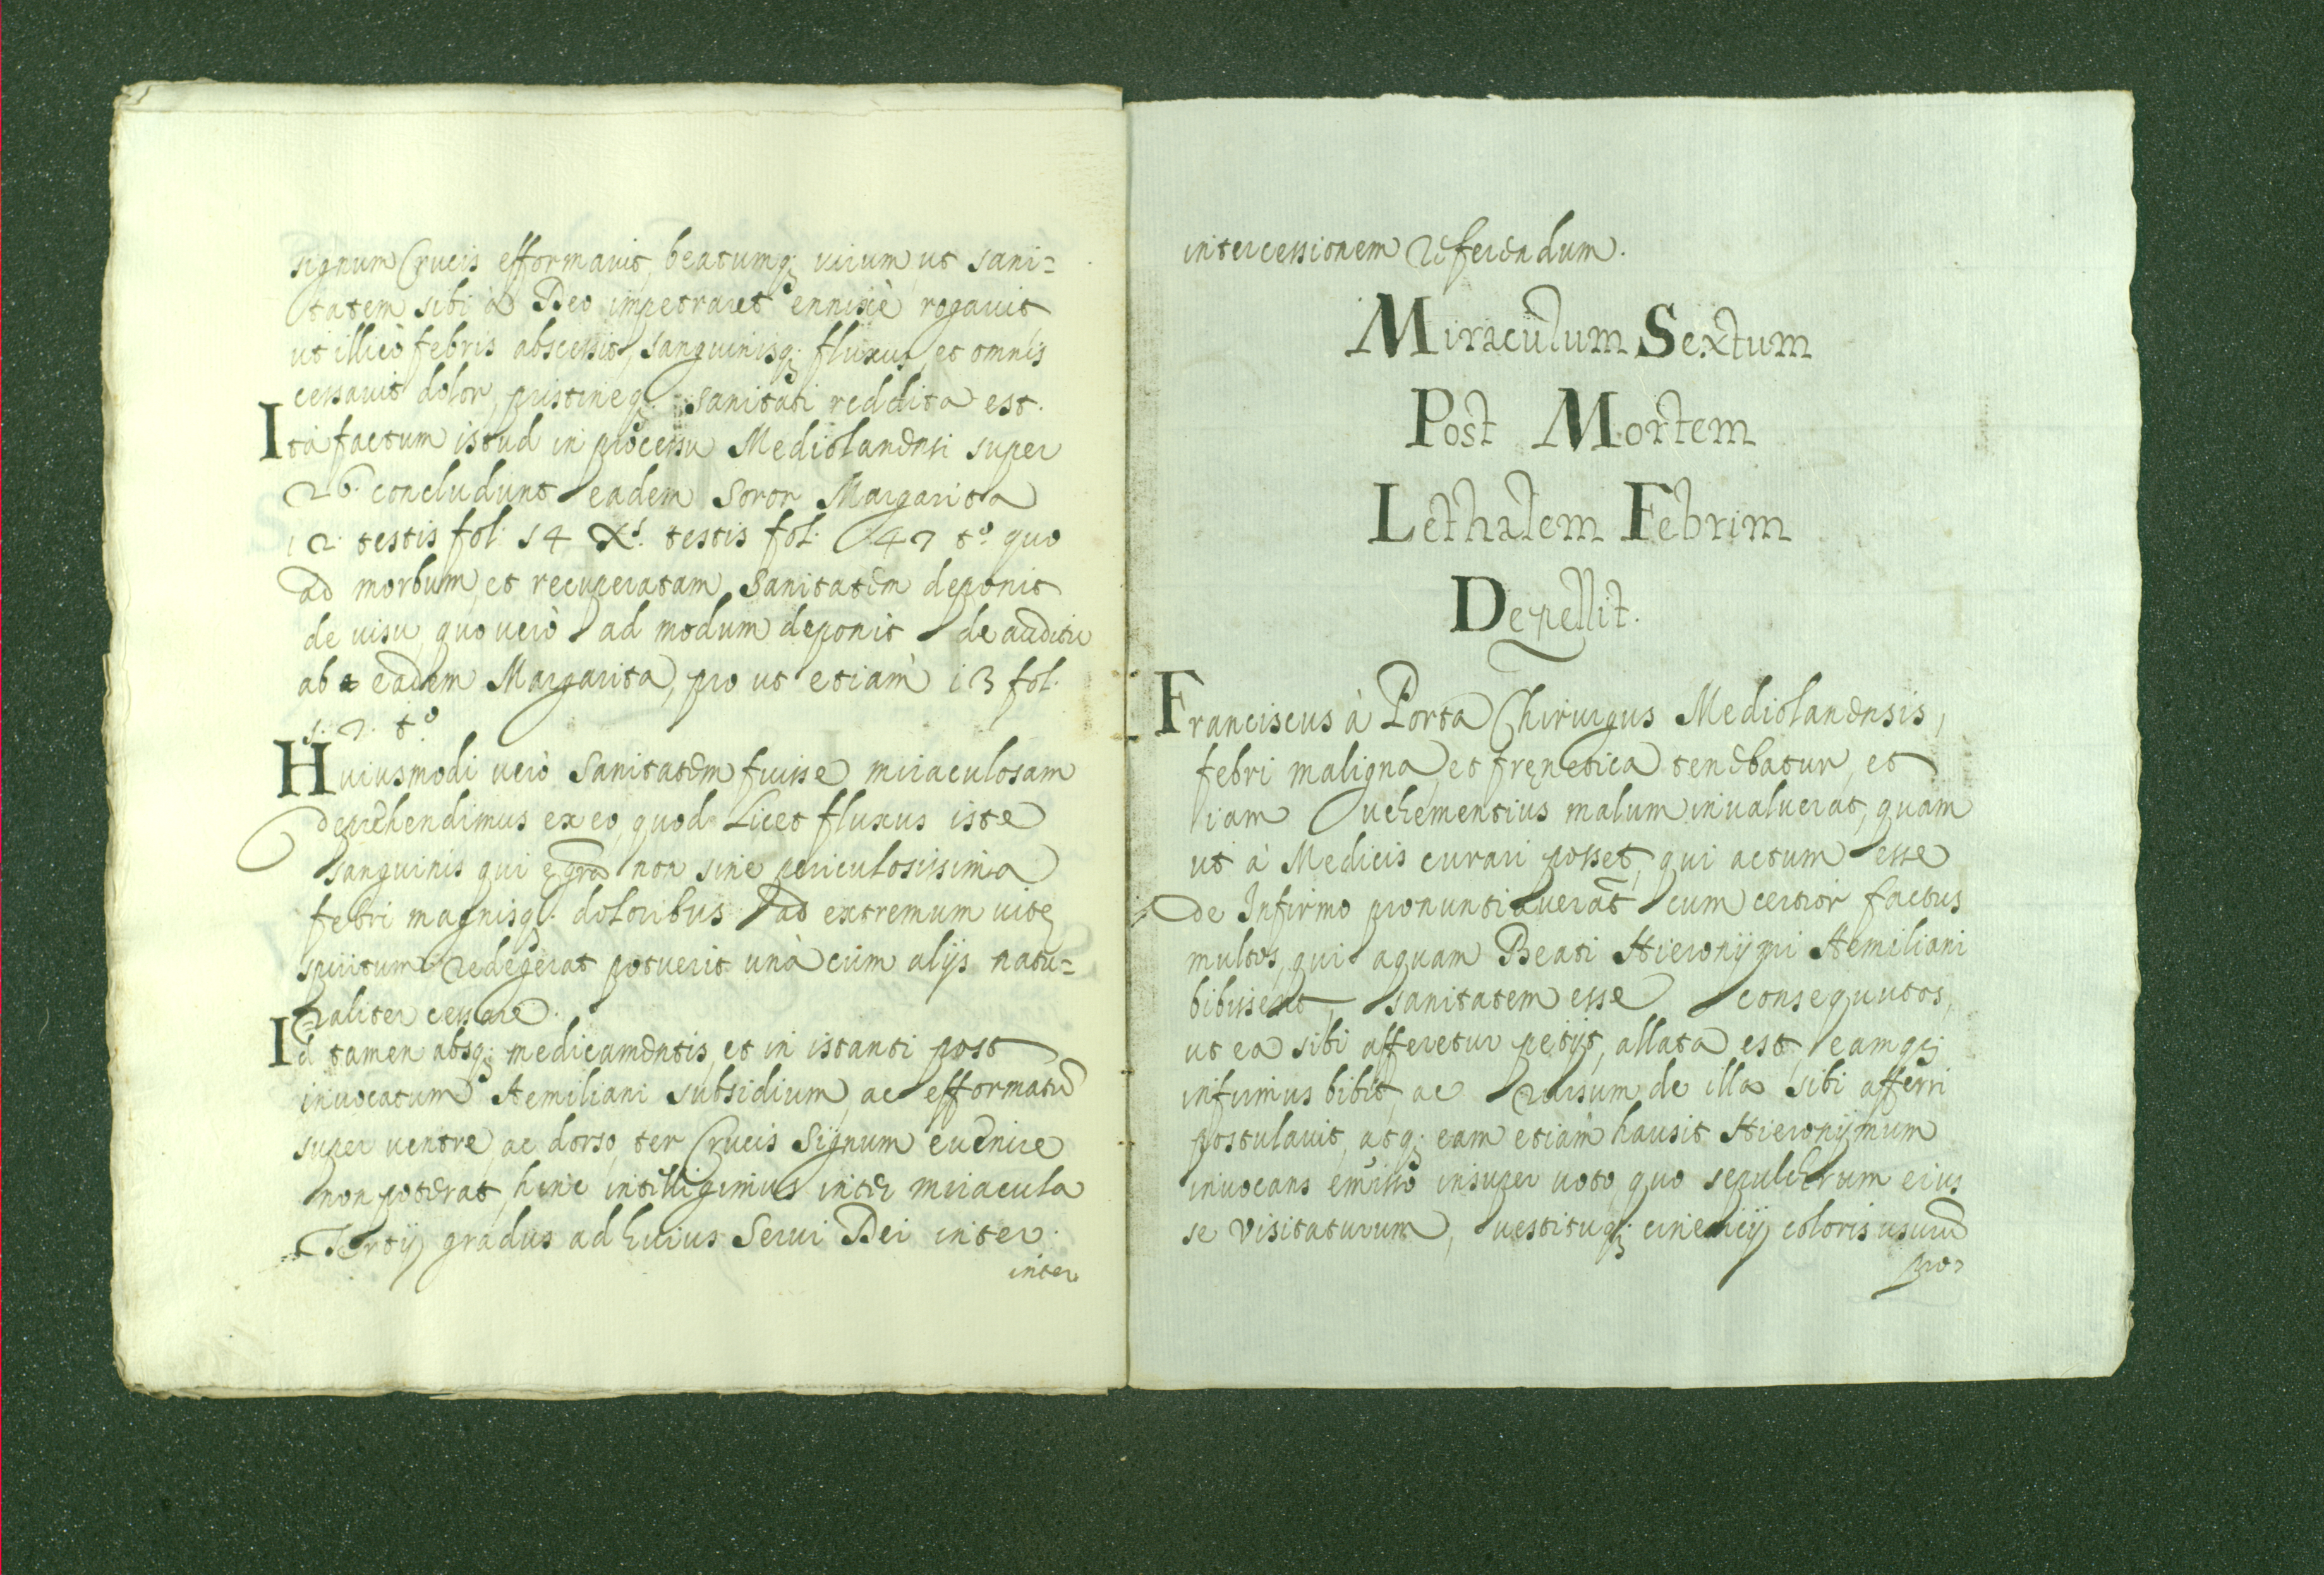 signum Crucis efformauit, beatumq; uirum ut sani=
tatem sibi à Deo impetraret ennixè rogauit
ut illicò febris abscessit, sanguinisq; fluxus, et omnis
cessauit dolor, pristineq; sanitati reddita est.
Ita factum istud in processu Mediolanensi super
26. concludunt eadem Soror Margarita
12. testis fol. 14 testis fol. 47 tº quo
ad morbum, et recuperatam sanitatem deponit
de uisu, quo uerò ad modum deponit de auditu
ab eadem Margarita, pro ut etiam 13 fol.
5. 7. tº
Huiusmodi uerò sanitatem fuisse miraculosam
deprehendimus ex eo, quod licet fluxus iste
sanguinis qui ęgrā non sine periculosissima
febri magnisq; doloribus ad extremum uitę
spiritum redegerat potuerit unà cum alijs natu=
raliter cessare.
Id tamen absq; medicamentis, et in istanti post
inuocatum Aemiliani subsidium, ac efformatū
super uentre, ac dorso, ter Crucis Signum euenire
non poterat, hinc intelligimus inter miracula
Tertij gradus ad huius Serui Dei inter
inter
intercessionem referendum.
Miraculum Sextum
Post Mortem
Lethalem Febrim
Depellit.
Franciscus à Porta Chirurgus Mediolanensis,
febri maligna, et frenetica tenebatur, et
iam uehementius malum inualuerat, quam
ut à Medicis curari posset, qui actum esse
de Infirmo pronuntiauerāt cum certior factus
multos, qui aquam Beati Hieronijmi Aemiliani
bibissent, sanitatem esse consequutos,
ut ea sibi afferetur petijt, allata est eamq;
infirmus bibit, ac rursum de illa sibi afferri
postulauit, atq; eam etiam hausit Hieronijmum
inuocans emisso insuper uoto, quo sepulchrum eius
se visitaturum, uestituq; cinericij coloris usurū
pro